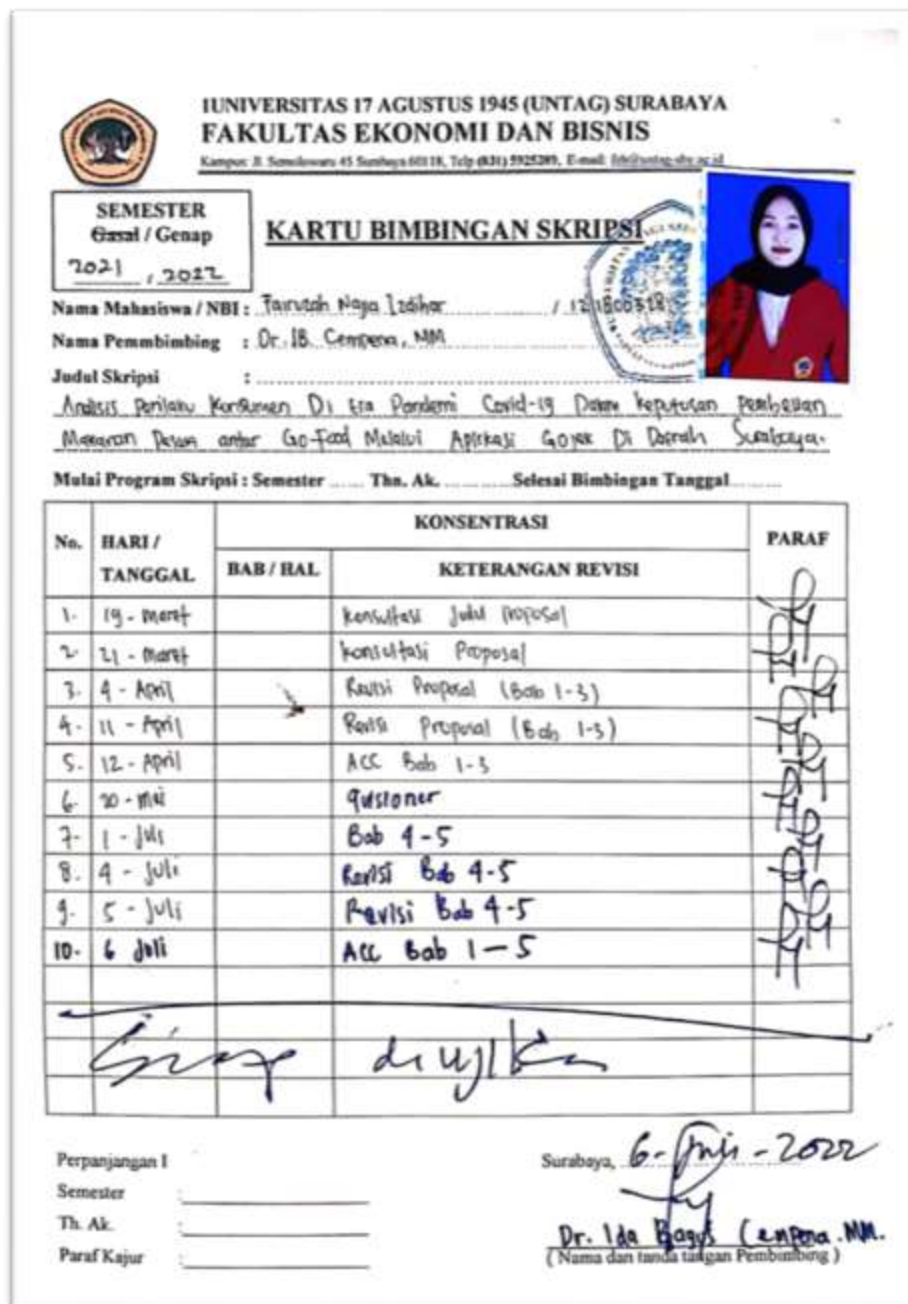 1UNIVERSITAS 17 AGUSTUS 1945 (UNTAG) SURABAYA
FAKULTAS EKONOMI DAN BISNIS
Kampus: Jl. Semolowaru 45 Surabaya 60118, Telp (031) 5925289, E-mail: feb@untag-sby.ac.id
SEMESTER
Gasal / Genap
2021 , 2022
KARTU BIMBINGAN SKRIPSI
Nama Mahasiswa / NBI : Fairuzah Naja Izdihar /
Nama Pemmbimbing : Dr. IB. Cempena, MM
Judul Skripsi :
Analisis Perilaku Konsumen Di Era Pandemi Covid-19 Dalam Keputusan Pembelian
Makanan Pesan antar Go-Food Melalui Aplikasi Gojek Di Daerah Surabaya.
Mulai Program Skripsi : Semester ...... Thn. Ak. ............ Selesai Bimbingan Tanggal ............
No. HARI / TANGGAL KONSENTRASI PARAF
BAB / HAL KETERANGAN REVISI
1. 19 - Maret Konsultasi Judul Proposal
2. 21 - Maret Konsultasi Proposal
3. 4 - April Revisi Proposal (Bab 1-3)
4. 11 - April Revisi Proposal (Bab 1-3)
5. 12 - April ACC Bab 1-3
6. 20 - Mei Quisioner
7. 1 - Juli Bab 4-5
8. 4 - Juli Revisi Bab 4-5
9. 5 - Juli Revisi Bab 4-5
10. 6 Juli ACC Bab 1-5
Siap diujikan
Perpanjangan I
Semester :
Th. Ak. :
Paraf Kajur :
Surabaya, 6-Juli-2022
Dr. Ida Bagus Cempena. MM.
( Nama dan tanda tangan Pembimbing )